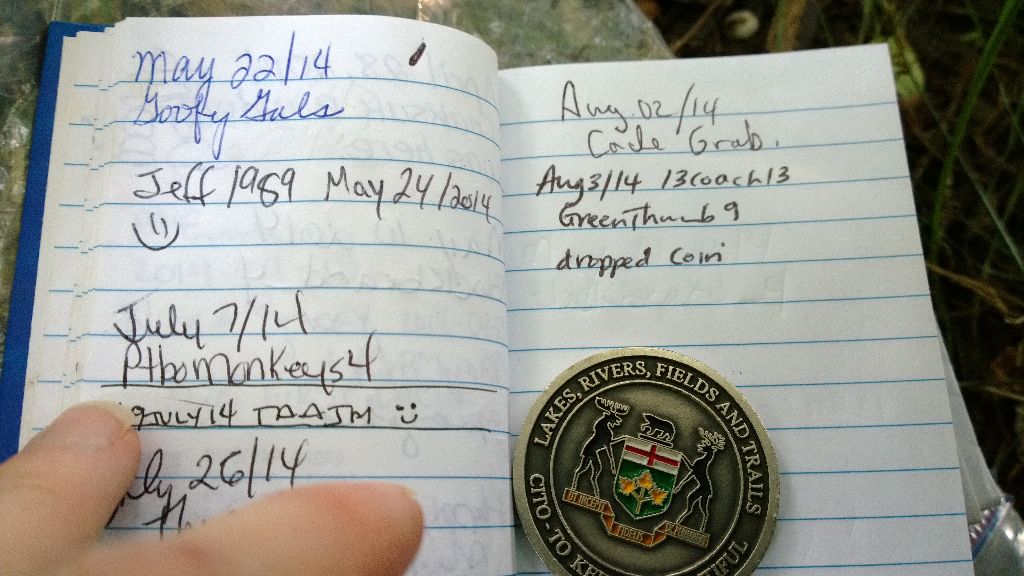 May 22/14
Goofy Gals
Jeff 1989 May 24/2014
July 7/14
PtboMonkeys4
19JULY14 TAAJM
26/14
Aug. 02/14
Grab.
Aug 3/14 13coach13
GreenThumb9
dropped Coin
LAKES, RIVERS, FIELDS AND TRAILS
CITO - TO